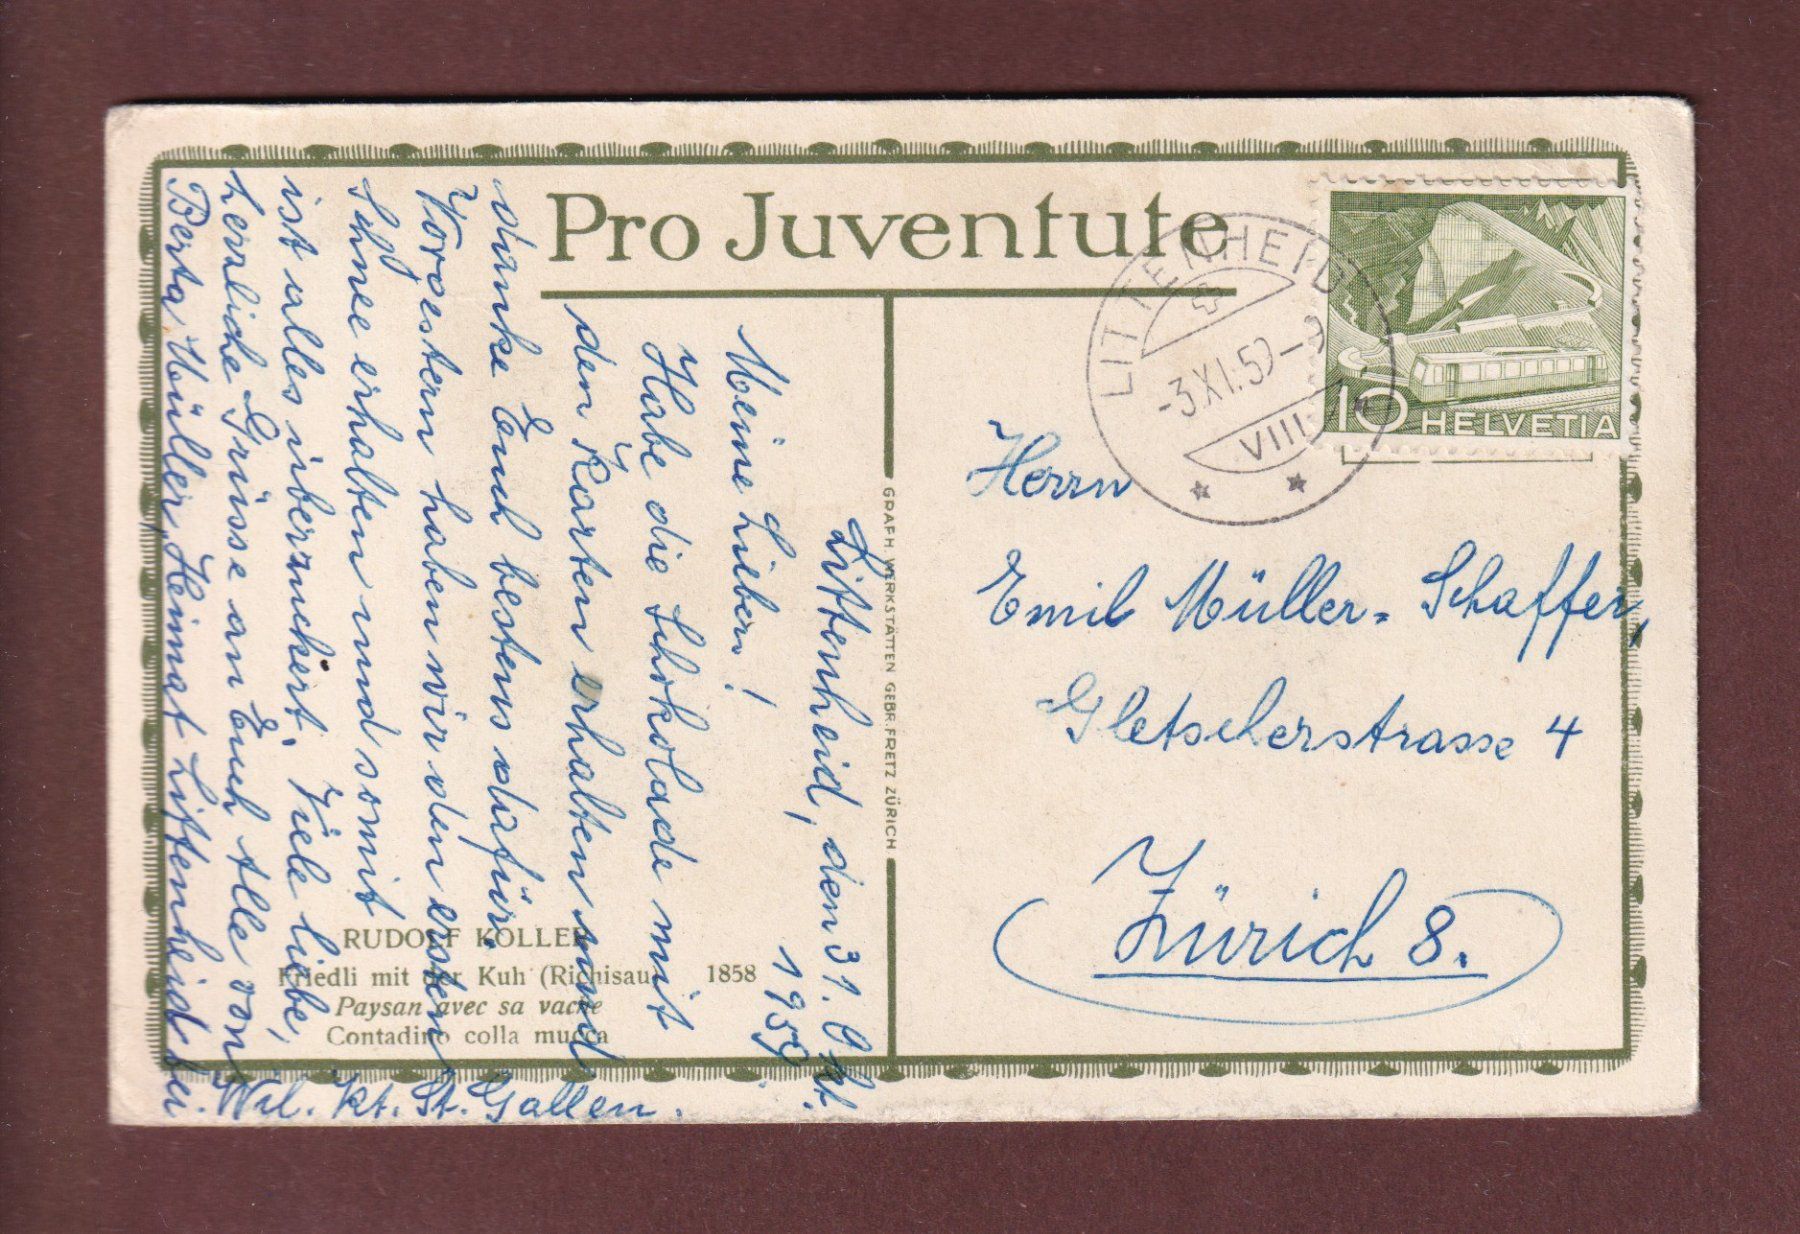 Pro Juventute
LITTENHEID
-3.XI.50-
VIII
10 HELVETIA
Littenheid, den 31. Okt.
1950.
Meine Lieben!
Habe die Schokolade mit
den Karten erhalten und
danke Euch bestens dafür.
Vorgestern haben wir den ersten
Schnee erhalten und somit
ist alles überzuckert. Viele liebe,
herzliche Grüsse an Euch Alle von
Berta Müller, Heimat Littenheid bei
Wil. Kt. St. Gallen.
Herrn
Emil Müller-Schaffer,
Gletscherstrasse 4
Zürich 8.
GRAPH. WERKSTÄTTEN GEBR. FRETZ ZÜRICH
RUDOLF KOLLER
Friedli mit der Kuh (Richisau) 1858
Paysan avec sa vache
Contadino colla mucca